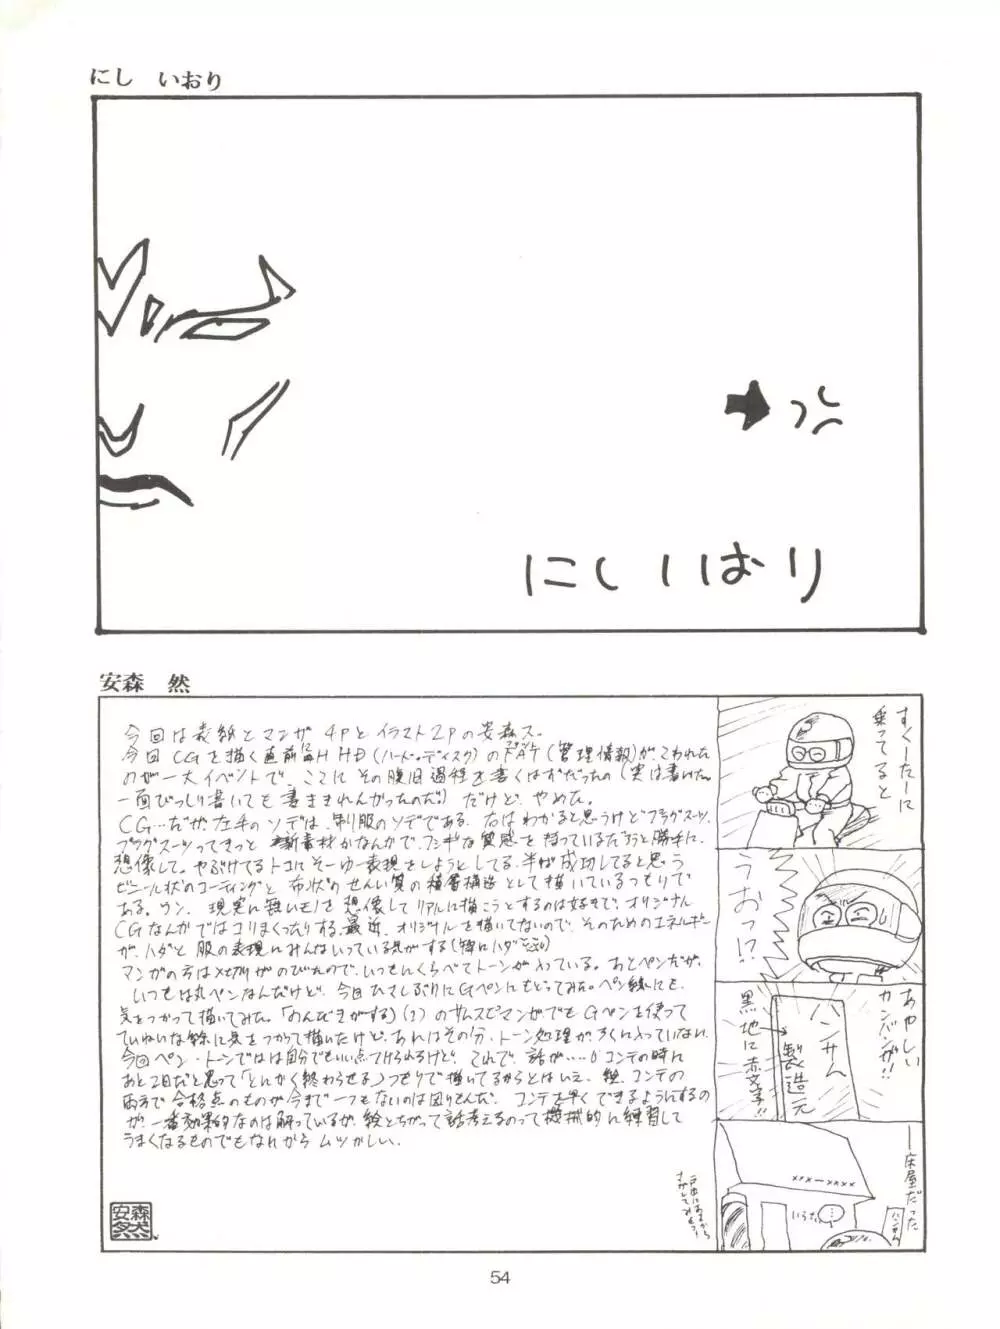 にし いおり
にしいおり
安森 然
今回は表紙とマンガ4Pとイラスト2Pの安森ス。
今回CGを描く直前にHHD(ハード・ディスク)のFAT(管理情報)がこわれた
のが一大イベントで、ここにその復旧過程を書くはずだったの(実は書いた。
一面びっしり書いても書ききれんかったのだ。)だけど、やめた。
CG…だが、左手のソデは、制服のソデである。右はわかると思うけどプラグスーツ。
プラグスーツってきっと新素材かなんかで、フシギな質感を持っているだろうと勝手に
想像して、やぶけてるトコにそーゆー表現をしようとしてる。半ば成功してると思う
ビニール状のコーティングと布状のせんい質の積層構造として描いているつもりで
ある。ウン、現実に無いモノを想像してリアルに描こうとするのは好きで、オリジナル
CGなんかではコリまくったりする。最近、オリジナルを描いてないので、そのためのエネルギー
が、ハダと服の表現にみんないっている気がする(特にハダ
マンガの方は〆切りがのびたので、いつもにくらべてトーンが入っている。あとペンだが、
いつもは丸ペンなんだけど、今回ひさしぶりにGペンにもどってみた。ペン線にも、
気をつかって描いてみた。「のんびきがする」(2)のサムスピマンガでもGペンを使って
ていねいな線に気をつかって描いたけど、あれはその分、トーン処理がろくに入っていない。
今回ペン・トーンでは自分でもいい点つけられるけど、これで、話が……。コンテの時に
あと2日だと思って「とにかく終わらせる」つもりで描いてるからとはいえ、絵、コンテの
両方で合格点のものが今まで一つもないのは困りもんだ。コンテを早くできるようにするの
が、一番効果的なのは解っているが、絵とちがって話考えるのって機械的に練習して
うまくなるものでもなれから ムツかしい。
安森然
すくーたーに
乗ってると
うおっ!?
あやしい
カンバンが!!
ハンサム
製造元
黒地に赤文字!!
―床屋だった
ハンサム
いらた
…
××××―××××
54